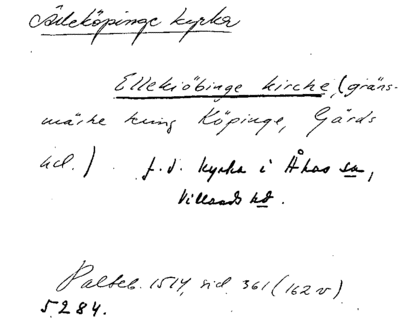 Ålleköpinge kyrka
Ellekiöbinge kirche, (gräns-
märke kring Köpinge, Gärds
hd.) f.d. kyrka i Åhus sn,
Villands hd.
Palteb. 1514, sid. 361 (162 v)
5284.